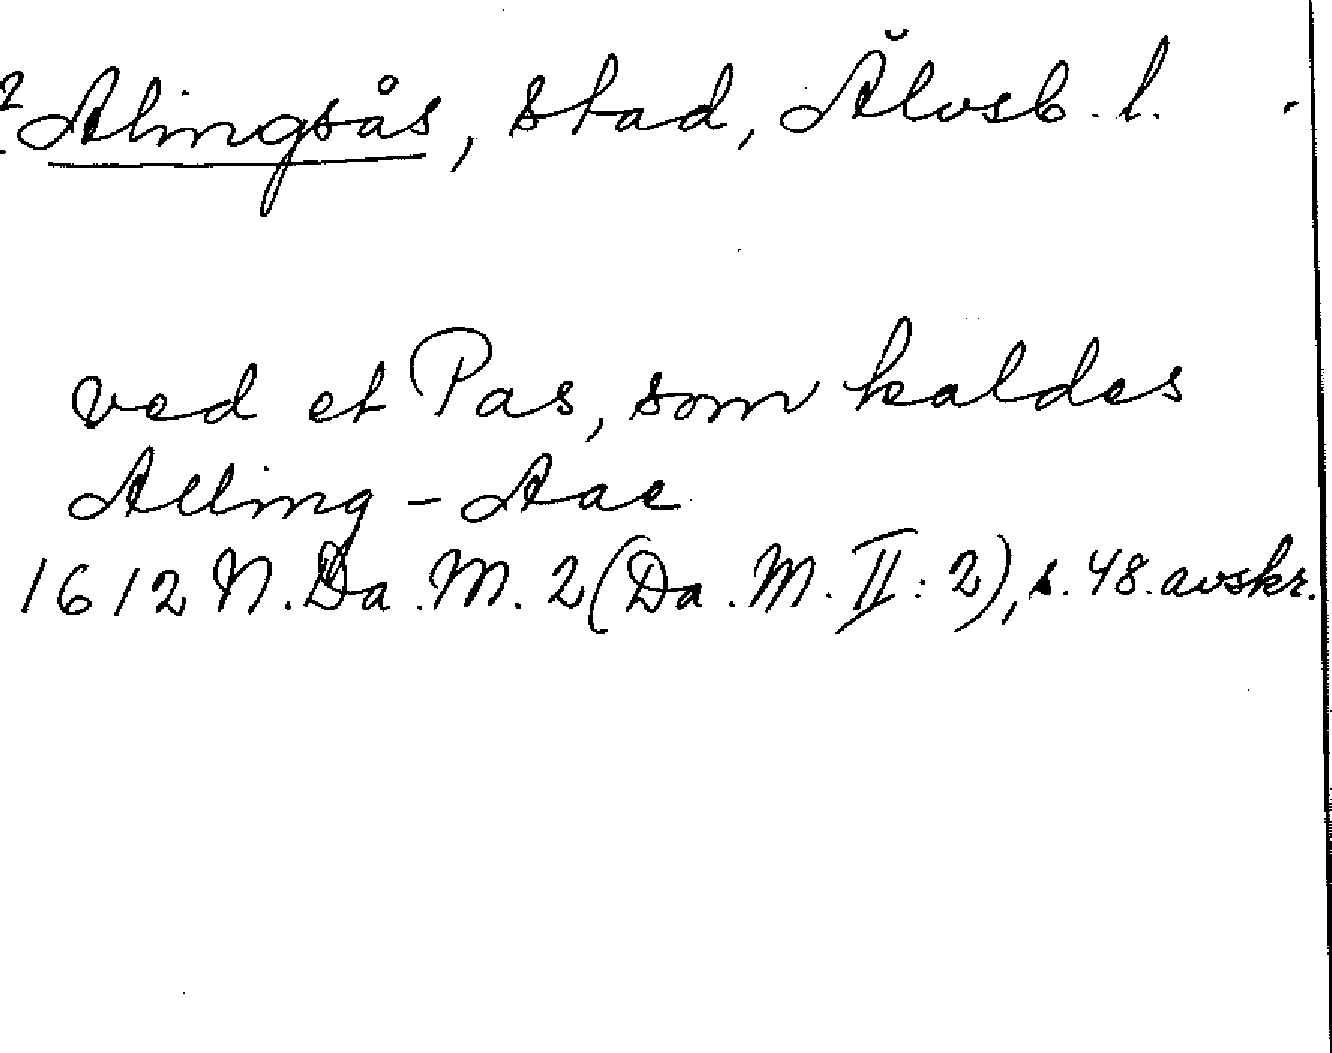 ? Alingsås, stad, Älvsb. l.
ved et Pas, som kaldes
Alling-Aae
1612 N. Da. M. 2 (Da. M. II: 2), s. 48. avskr.